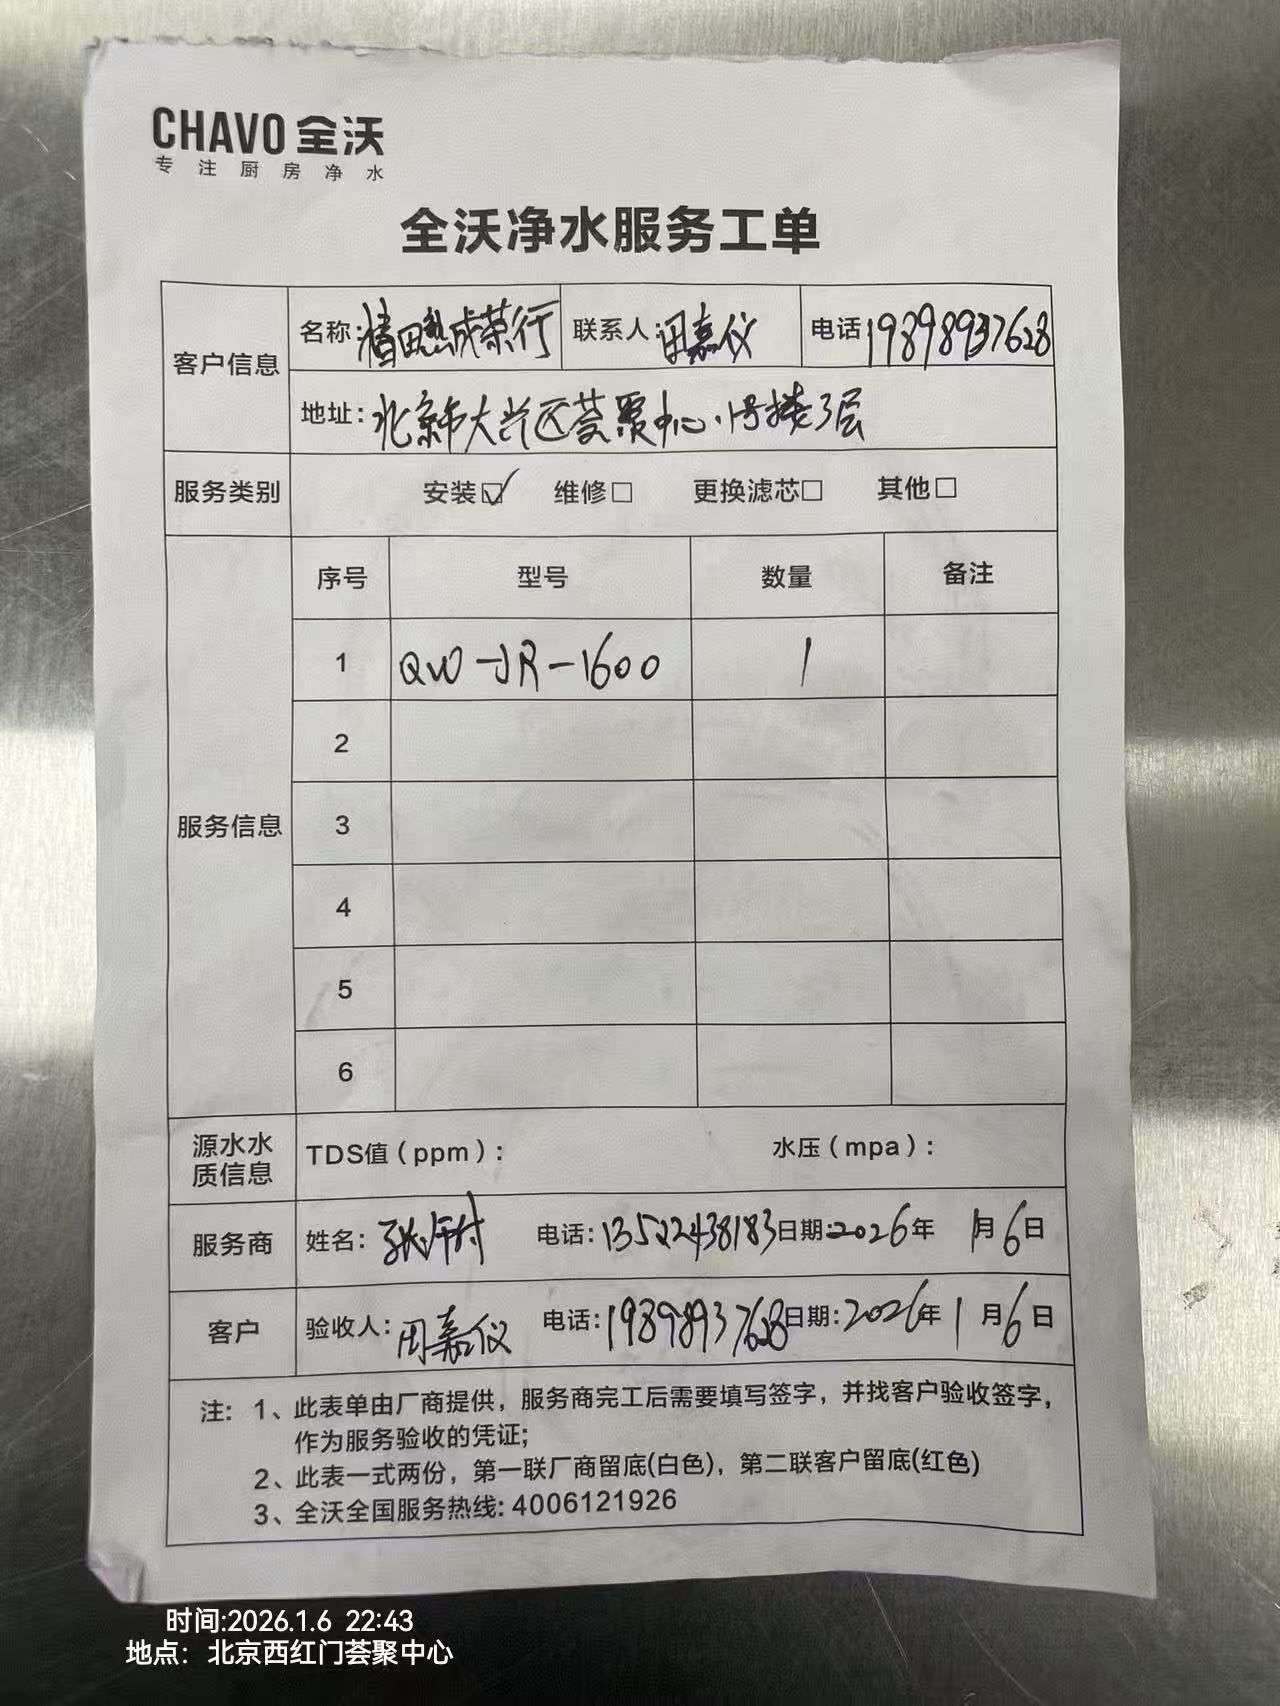 CHAVO 全沃
专注厨房净水
全沃净水服务工单
客户信息 名称: 田熟成荣行 联系人: 周嘉仪 电话 19898937628
地址: 北京市大兴区荟聚中心1号楼3层
服务类别 安装☑ 维修□ 更换滤芯□ 其他□
服务信息 序号 型号 数量 备注
1 QW-JR-1600 1
2
3
4
5
6
源水水质信息 TDS值(ppm): 水压(mpa):
服务商 姓名: 张 电话: 13522438183 日期: 2026年1月6日
客户 验收人: 周嘉仪 电话: 19898937628 日期: 2026年1月6日
注: 1、此表单由厂商提供，服务商完工后需要填写签字，并找客户验收签字，
作为服务验收的凭证;
2、此表一式两份，第一联厂商留底(白色)，第二联客户留底(红色)
3、全沃全国服务热线: 4006121926
时间:2026.1.6 22:43
地点：北京西红门荟聚中心